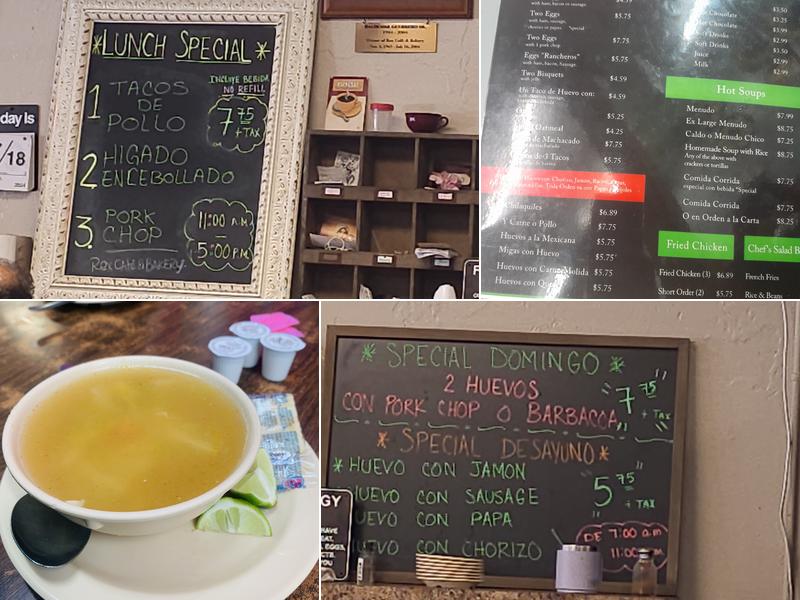 *LUNCH SPECIAL*
INCLUYE BEBIDA
NO REFILL
1 TACOS
DE
POLLO
7 75
+ TAX
2 HIGADO
ENCEBOLLADO
3. PORK
CHOP
11:00 A.M
5:00 P.M
Rox CAFE & BAKERY.
day Is
/18
$5.75
Two Eggs
with ham, sausage,
Two Eggs
with 1 pork chop
$7.75
Eggs "Rancheros"
with ham, bacon, Sausage.
$5.75
Two Bisquets
with jelly
$4.59
Un Taco de Huevo con:
$4.59
$5.25
Oatmeal
$4.25
de Machacado
$7.75
Tacos
$5.75
Chilaquiles
$6.89
Y Carne o Pollo
$7.75
Huevos a la Mexicana
$5.75
Migas con Huevo
$5.75
Huevos con Carne Molida
$5.75
Huevos con
$5.75
Chocolate
$3.50
Chocolate
$3.25
Soft Drinks
$2.99
Soft Drinks
$2.50
Juice
$2.99
Milk
$2.99
Hot Soups
Menudo
$7.99
Ex Large Menudo
$8.75
Caldo o Menudo Chico
$7.25
Homemade Soup with Rice
$8.75
Any of the above with
crackers or tortillas
Comida Corrida
$7.75
especial con bebida *Special
Comida Corrida
$7.75
O en Orden a la Carta
$8.25
Fried Chicken
Chef's Salad
Fried Chicken (3)
$6.89
Short Order (2)
$5.75
French Fries
Rice & Beans
* SPECIAL DOMINGO *
2 HUEVOS
CON PORK CHOP O BARBACOA,
7 75
+ TAX
* SPECIAL DESAYUNO *
* HUEVO CON JAMON
HUEVO CON SAUSAGE
HUEVO CON PAPA
HUEVO CON CHORIZO
5 75
+ TAX
DE 7:00 a.m
11:00
GY
HAVE
EGGS,
YOU